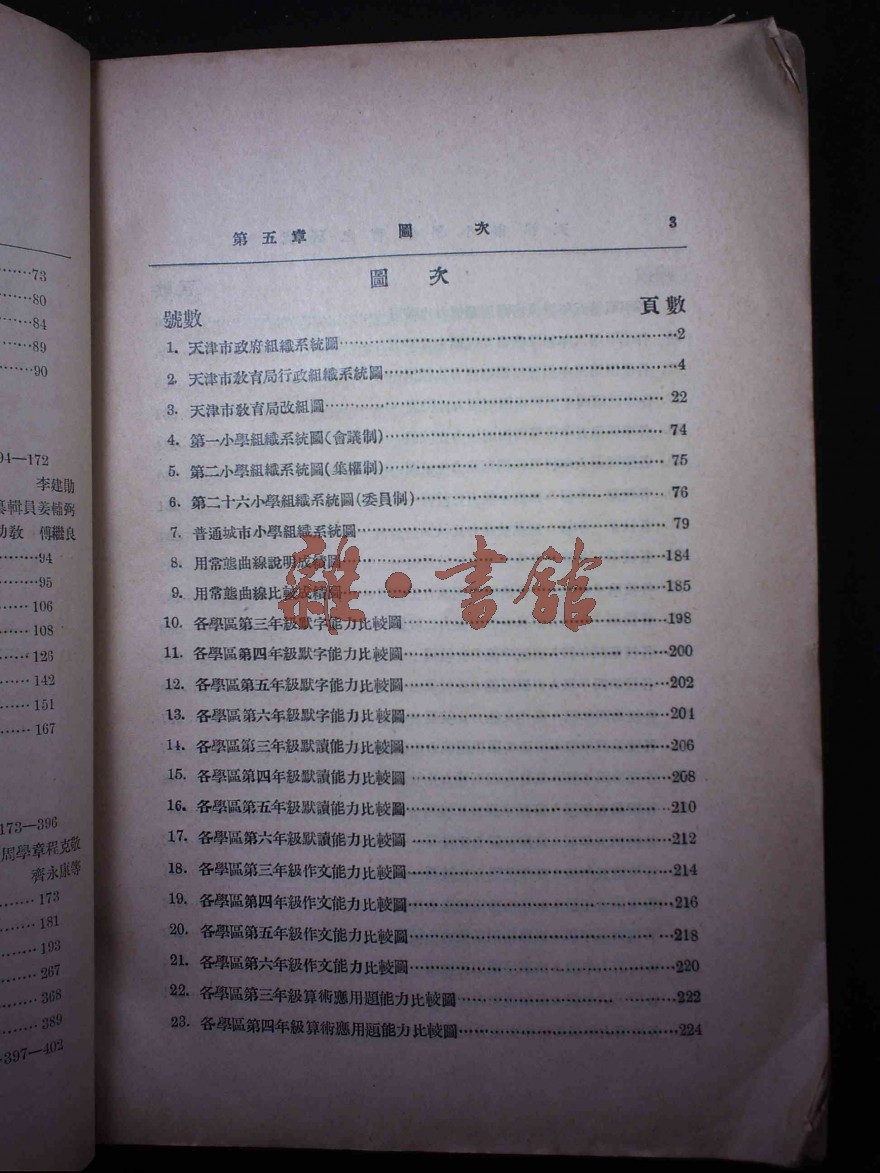 73
80
84
89
90
94—172
李建勛
纂輯員姜輔弼
助教 傅繼良
94
95
106
108
126
142
151
167
173—396
周學章程克敬
齊永康等
173
181
193
267
368
389
397—402
第五章 圖次 3
圖次
號數 頁數
1. 天津市政府組織系統圖 2
2. 天津市教育局行政組織系統圖 4
3. 天津市教育局改組圖 22
4. 第一小學組織系統圖(會議制) 74
5. 第二小學組織系統圖(集權制) 75
6. 第二十六小學組織系統圖(委員制) 76
7. 普通城市小學組織系統圖 79
8. 用常態曲線說明成績圖 184
9. 用常態曲線比較成績圖 185
10. 各學區第三年級默字能力比較圖 198
11. 各學區第四年級默字能力比較圖 200
12. 各學區第五年級默字能力比較圖 202
13. 各學區第六年級默字能力比較圖 204
14. 各學區第三年級默讀能力比較圖 206
15. 各學區第四年級默讀能力比較圖 208
16. 各學區第五年級默讀能力比較圖 210
17. 各學區第六年級默讀能力比較圖 212
18. 各學區第三年級作文能力比較圖 214
19. 各學區第四年級作文能力比較圖 216
20. 各學區第五年級作文能力比較圖 218
21. 各學區第六年級作文能力比較圖 220
22. 各學區第三年級算術應用題能力比較圖 222
23. 各學區第四年級算術應用題能力比較圖 224
雜·書館